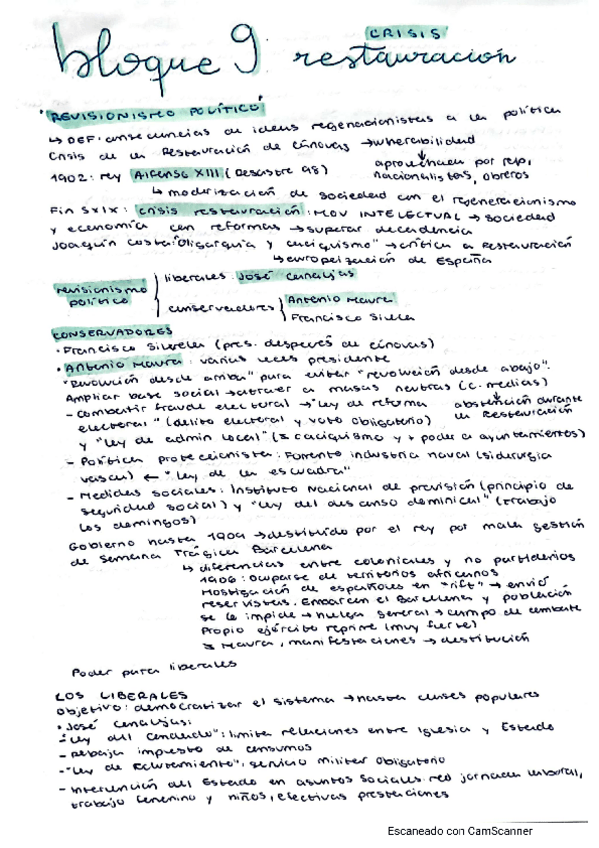 CRISIS
bloque 9: restauración
"REVISIONISMO POLÍTICO"
↳ DEF: consecuencias de ideas regeneracionistas a la política
Crisis de la Restauración de Cánovas → vulnerabilidad
1902: rey Alfonso XIII (Desastre 98) aprovechada por rep,
nacionalistas, obreros
↳ modernización de sociedad con el regeneracionismo
Fin SXIX: crisis restauración: MOV INTELECTUAL → sociedad
y economía con reformas → superar decadencia
Joaquín Costa: "Oligarquía y caciquismo" → crítica a Restauración
↳ europeización de España
revisionismo político
liberales: José Canalejas
conservadores
Antonio Maura
Francisco Silvela
CONSERVADORES
· Francisco Silvela (pres. después de Cánovas)
· Antonio Maura: varias veces presidente
"Revolución desde arriba" para evitar "revolución desde abajo".
Ampliar base social → atraer a masas neutras (c. medias)
- Combatir fraude electoral → "Ley de reforma abstención durante
electoral" (delito electoral y voto obligatorio) la Restauración
y "ley de admin local" (± caciquismo y + poder a ayuntamientos)
- Política proteccionista: Fomento industria naval (siderurgia
vasca) ← "Ley de la escuadra"
- Medidas sociales: Instituto Nacional de previsión (principio de
seguridad social) y "Ley del descanso dominical" (trabajo
los domingos)
Gobierno hasta 1909 → destituido por el rey por mala gestión
de Semana Trágica Barcelona
↳ diferencias entre coloniales y no partidarios
1906: Ocuparse de territorios africanos
Hostigación de españoles en "rift" → envió
reservistas. Embarcan el Barcelona y población
se lo impide → huelga general → campo de combate
Propio ejército reprime (muy fuerte)
Maura, manifestaciones → destitución
Poder para liberales
LOS LIBERALES
Objetivo: democratizar el sistema → hasta clases populares
· José Canalejas:
- "Ley del Candado": limita relaciones entre Iglesia y Estado
- Rebaja impuesto de consumos
- "Ley de Reclutamiento": servicio militar obligatorio
- Intervención del Estado en asuntos sociales: red jornada laboral,
trabajo femenino y niños, efectivas prestaciones
Escaneado con CamScanner